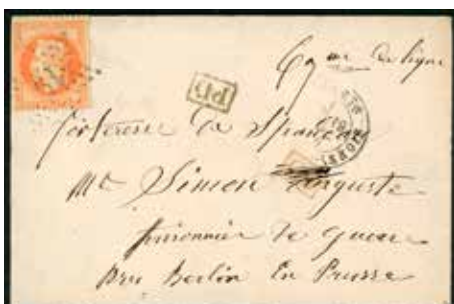 69me de ligne
PD
forteresse de Spandau
Mr Simon Auguste
prisonnier de guerre
Près Berlin En Prusse